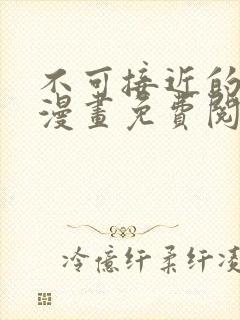 不可接近的
漫畫免費閱
冷億纤柔纤凌